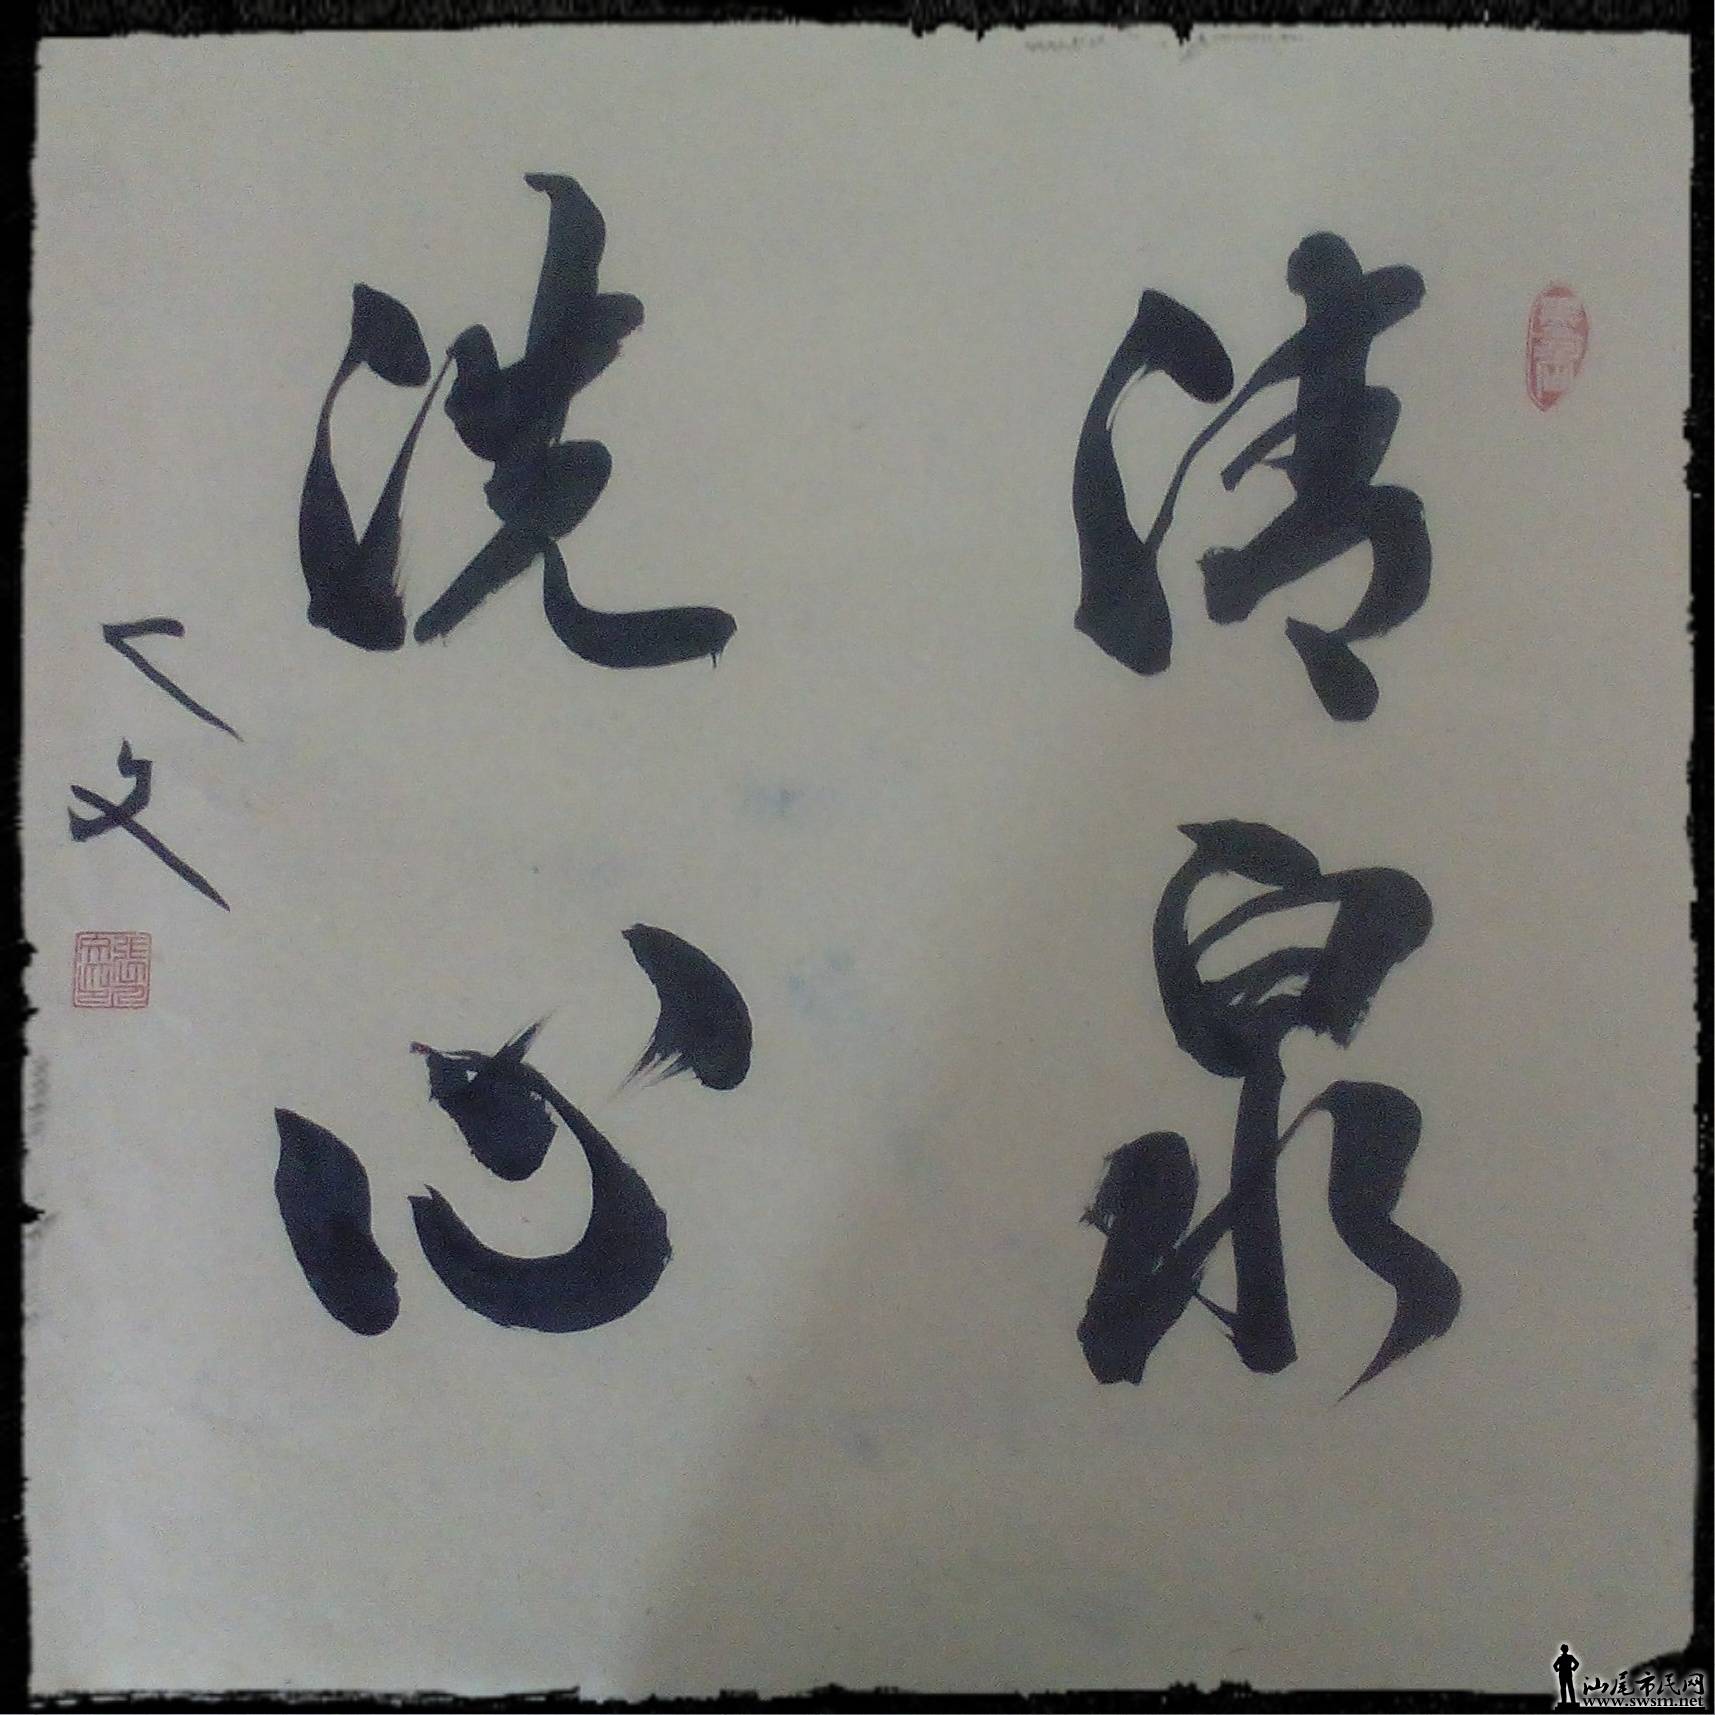 清泉
洗心
汕尾市民网
www.swsm.net